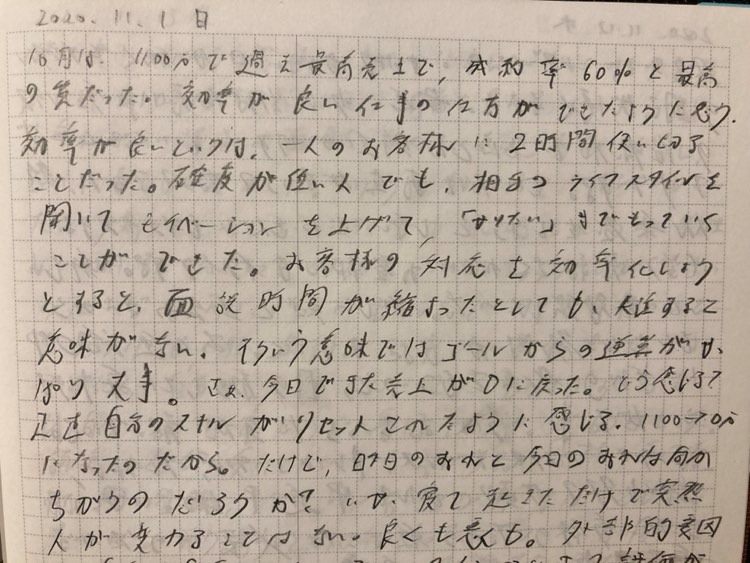 2020. 11. 1 日
10月は、1100万で過去最高売上で、成約率60%と最高
の質だった。効率が良い仕事の仕方ができたように思う。
効率が良いというのは、一人のお客様に2時間使い切る
ことだった。確度が低い人でも、相手のライフスタイルを
聞いてモチベーションを上げて、「やりたい」までもっていく
ことができた。お客様の対応を効率化しよう
とすると、面談時間が縮まったとしても、失注すると
意味がない。そういう意味ではゴールからの逆算がや
っぱり大事。さぁ、今日でまた売上が0に戻った。どう感じる?
正直自分のスキルがリセットされたように感じる。1100→0万
になったのだから。だけど、昨日のおれと今日のおれは何が
ちがうのだろうか?いや、寝て起きただけで突然
人が変わることはない。良くも悪くも。外部的要因